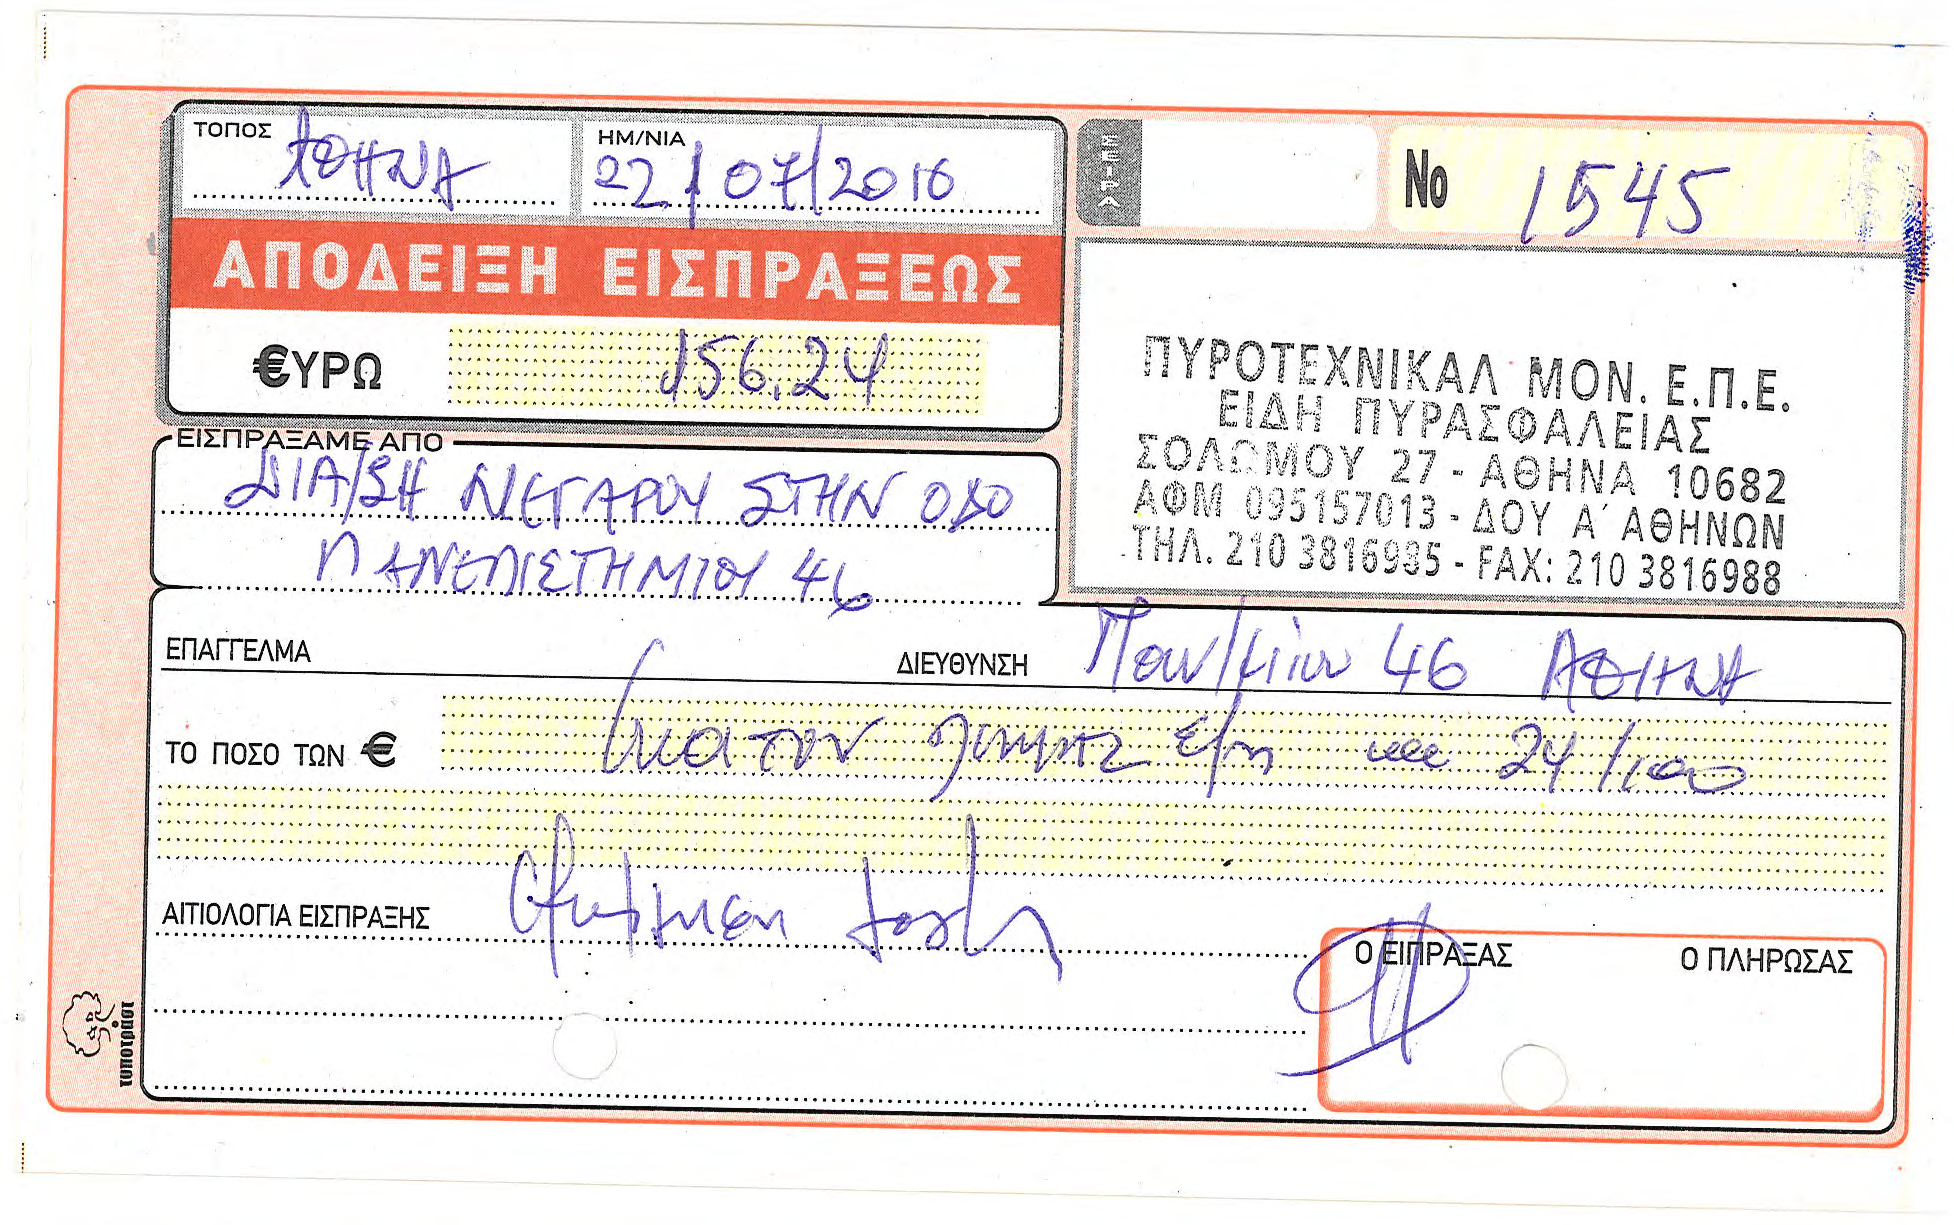 ΤΟΠΟΣ ΑΘΗΝΑ
ΗΜ/ΝΙΑ 22/07/2016
ΣΕΙΡΑ
No 1545
ΑΠΟΔΕΙΞΗ ΕΙΣΠΡΑΞΕΩΣ
€ΥΡΩ 156.24
ΠΥΡΟΤΕΧΝΙΚΑΛ ΜΟΝ. Ε.Π.Ε.
ΕΙΔΗ ΠΥΡΑΣΦΑΛΕΙΑΣ
ΣΟΛΩΜΟΥ 27 - ΑΘΗΝΑ 10682
ΑΦΜ 095157013 - ΔΟΥ Α΄ ΑΘΗΝΩΝ
ΤΗΛ. 210 3816985 - FAX: 210 3816988
ΕΙΣΠΡΑΞΑΜΕ ΑΠΟ
ΔΙΑ/ΣΗ ΜΕΓΑΡΟΥ ΣΤΗΝ ΟΔΟ
ΠΑΝΕΠΙΣΤΗΜΙΟΥ 46
ΕΠΑΓΓΕΛΜΑ
ΔΙΕΥΘΥΝΣΗ Παν/μίου 46 ΑΘΗΝΑ
ΤΟ ΠΟΣΟ ΤΩΝ € Εκατον 24/100
ΑΙΤΙΟΛΟΓΙΑ ΕΙΣΠΡΑΞΗΣ
Ο ΕΙΠΡΑΞΑΣ Ο ΠΛΗΡΩΣΑΣ
τυποτράστ